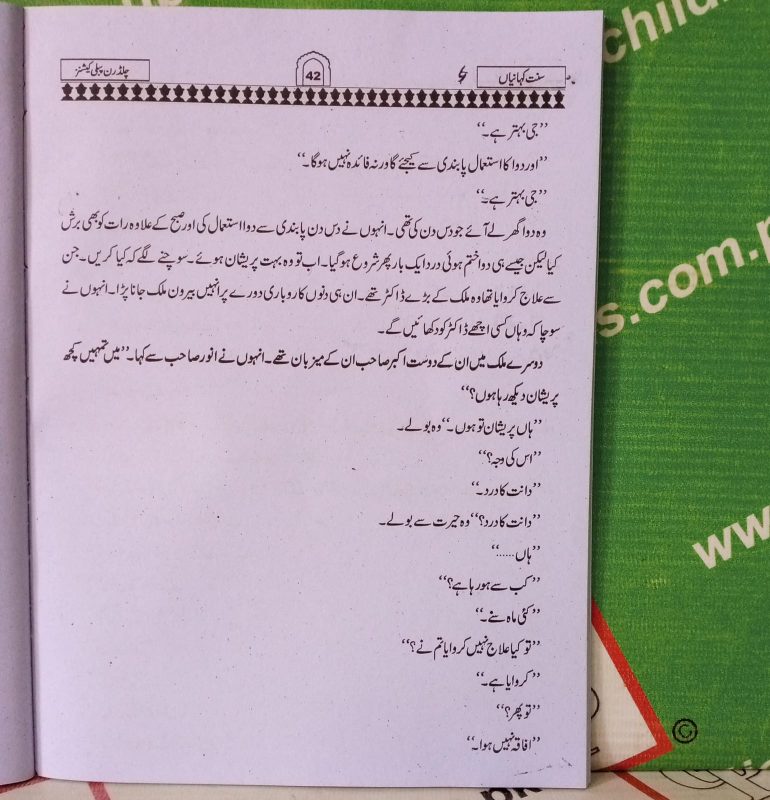 سنت کہانیاں
42
چلڈرن پبلی کیشنز
’’جی بہتر ہے۔‘‘
’’اور دوا کا استعمال پابندی سے کیجئے گا ورنہ فائدہ نہیں ہوگا۔‘‘
’’جی بہتر ہے۔‘‘
وہ دوا گھر لے آئے جو دس دن کی تھی۔ انہوں نے دس دن پابندی سے دوا استعمال کی اور صبح کے علاوہ رات کو بھی برش
کیا لیکن جیسے ہی دوا ختم ہوئی درد ایک بار پھر شروع ہوگیا۔ اب تو وہ بہت پریشان ہوئے۔ سوچنے لگے کہ کیا کریں۔ جن
سے علاج کروایا تھا وہ ملک کے بڑے ڈاکٹر تھے۔ ان ہی دنوں کاروباری دورے پر انہیں بیرون ملک جانا پڑا۔ انہوں نے
سوچا کہ وہاں کسی اچھے ڈاکٹر کو دکھائیں گے۔
دوسرے ملک میں ان کے دوست اکبر صاحب ان کے میزبان تھے۔ انہوں نے انور صاحب سے کہا۔ ’’میں تمہیں کچھ
پریشان دیکھ رہا ہوں؟‘‘
’’ہاں پریشان تو ہوں۔‘‘ وہ بولے۔
’’اس کی وجہ؟‘‘
’’دانت کا درد۔‘‘
’’دانت کا درد؟‘‘ وہ حیرت سے بولے۔
’’ہاں.....‘‘
’’کب سے ہو رہا ہے؟‘‘
’’کئی ماہ سے۔‘‘
’’تو کیا علاج نہیں کروایا تم نے؟‘‘
’’کروایا ہے۔‘‘
’’تو پھر؟‘‘
’’افاقہ نہیں ہوا۔‘‘
child
s.com.p
www
©